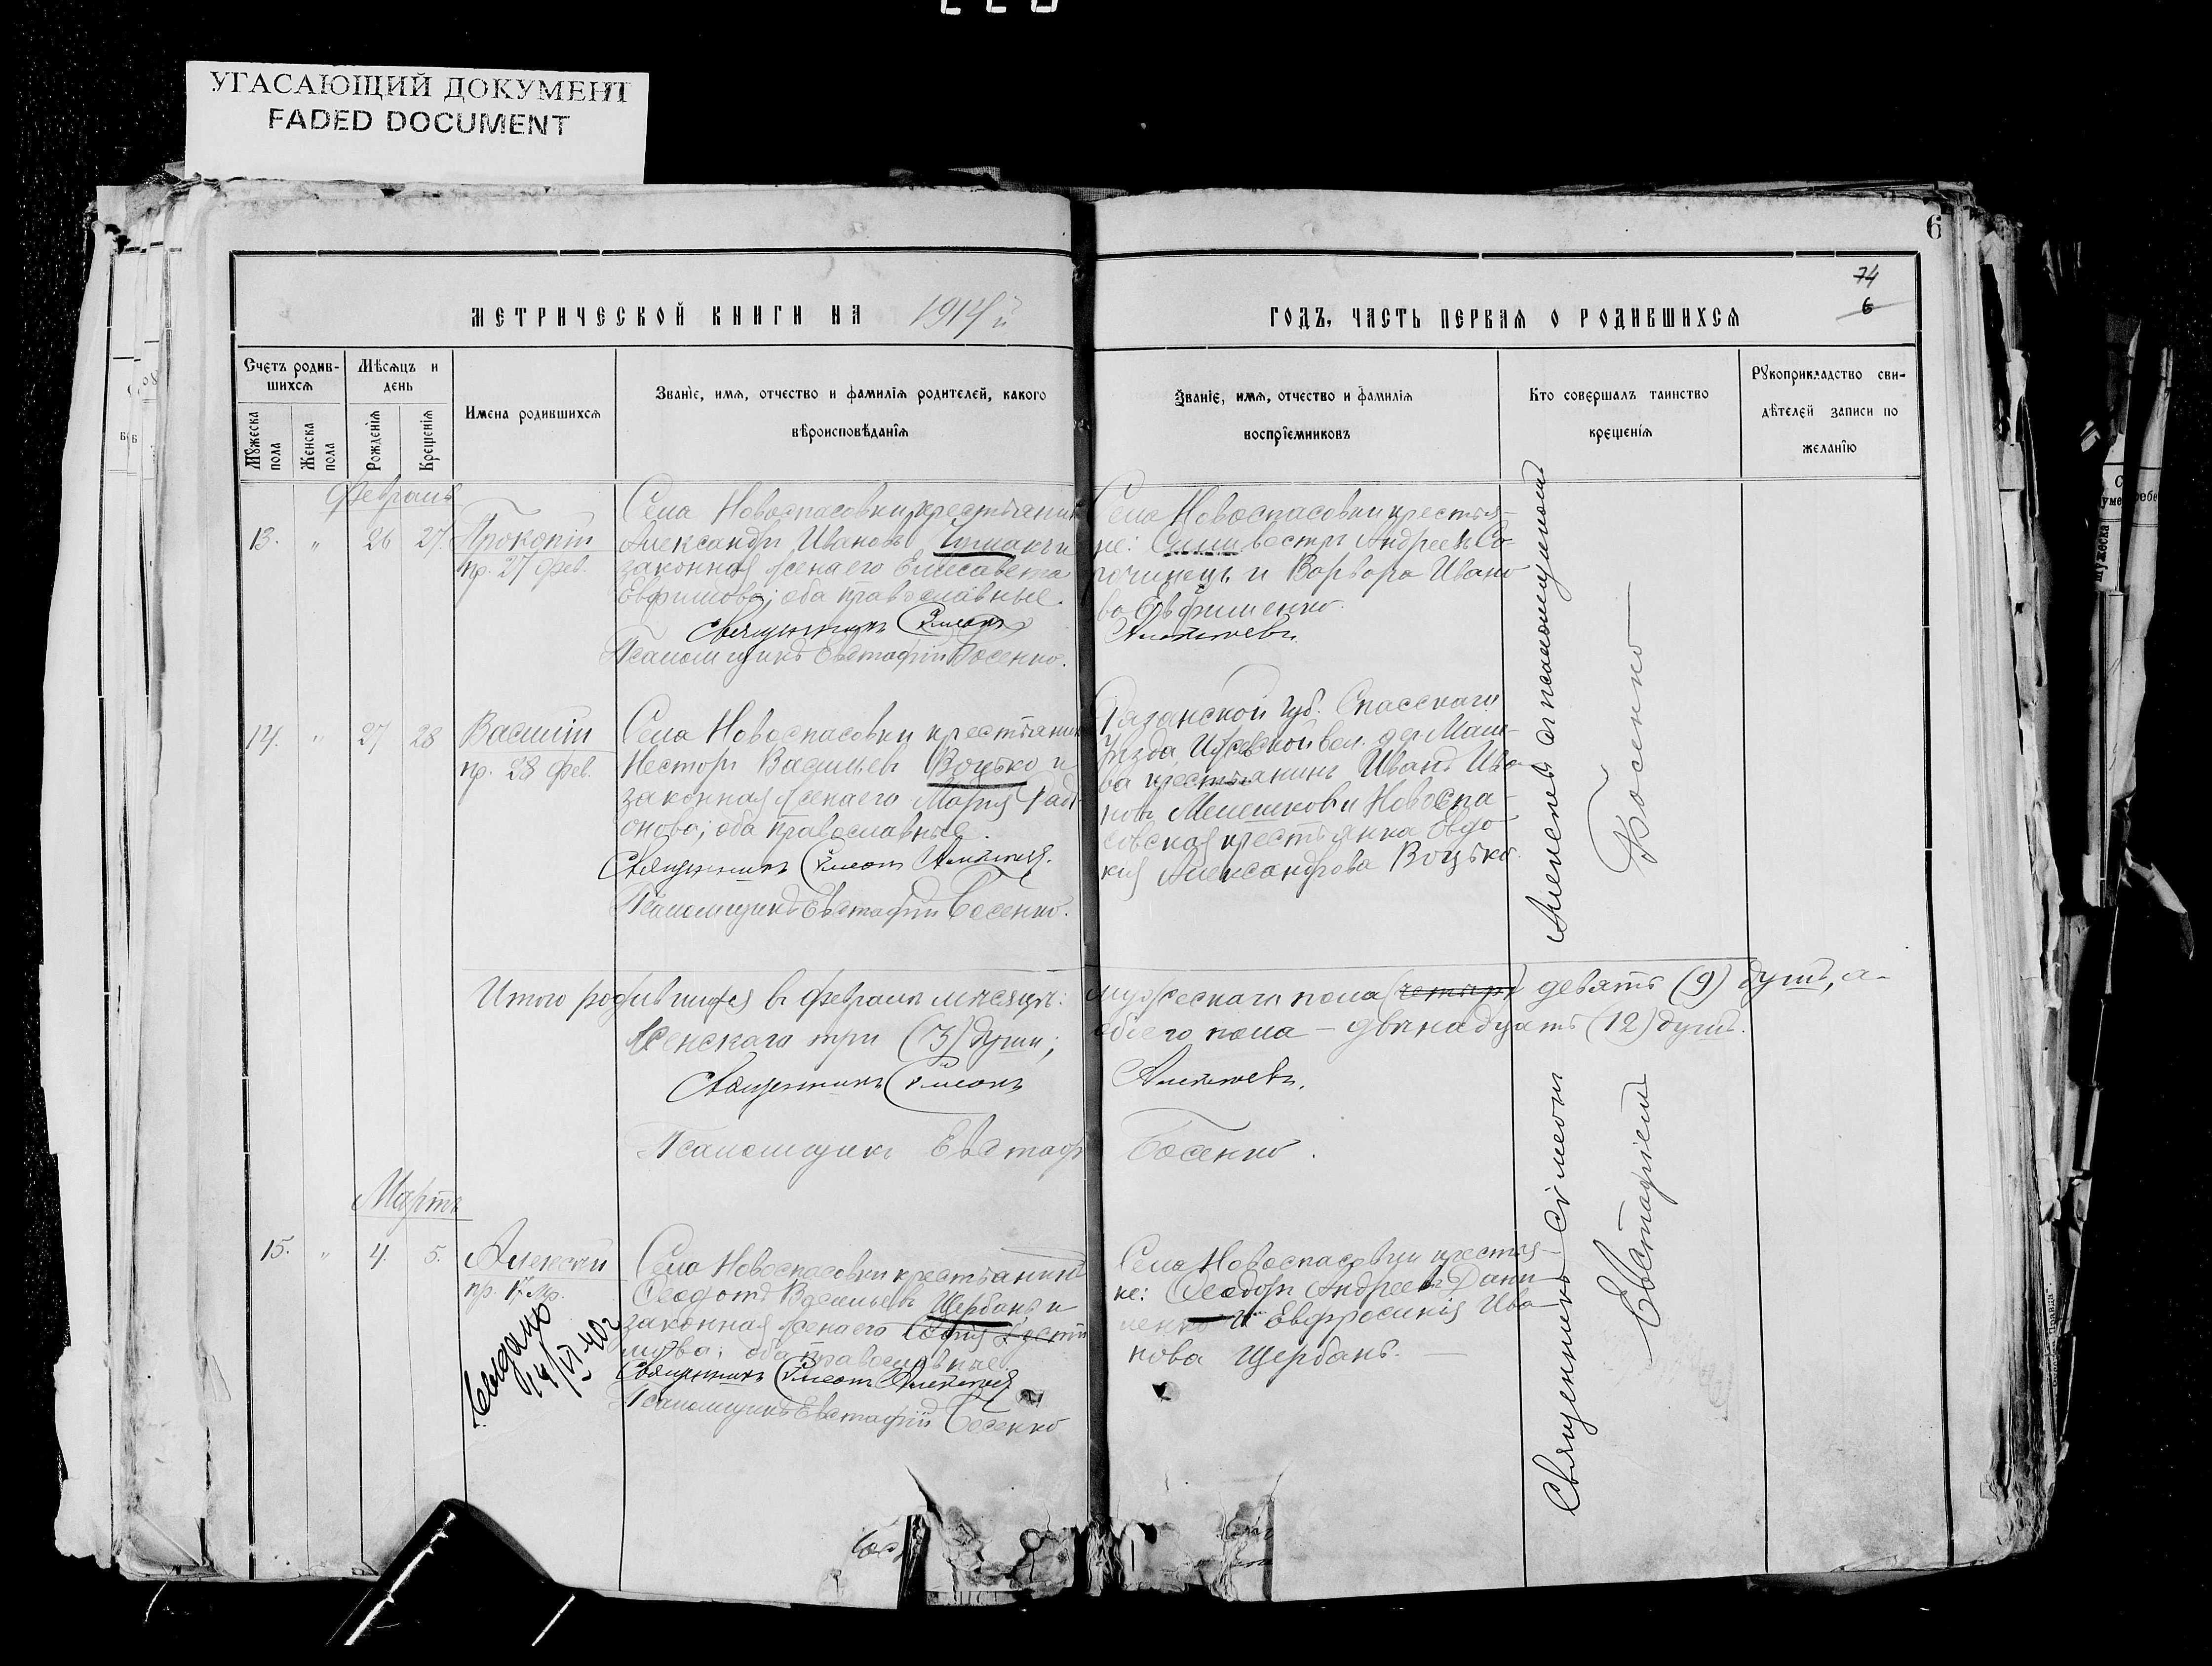 УГАСАЮЩИЙ ДОКУМЕНТ
FADED DOCUMENT
6
74
6
МЕТРИЧЕСКОЙ КНИГИ НА 1914й
ГОДЪ, ЧАСТЬ ПЕРВАЯ О РОДИВШИХСЯ
Счетъ родив-
шихся
Мужеска
пола
Женска
пола
Мѣсяцъ и
день
Рожденія
Крещенія
Имена родившихся
Званіе, имя, отчество и фамилія родителей, какого
вѣроисповѣданія
Званіе, имя, отчество и фамилія
воспріемниковъ
Кто совершалъ таинство
крещенія
Рукоприкладство сви-
дѣтелей записи по
желанію
Февраль
13. " 26 27.
Прокопій
пр. 27 фев.
Села Новоспасовки крестьянинъ
Александръ Ивановъ
законная жена его Елисавета
Евфимова; оба православные.
Священникъ Сѵмеонъ
Псаломщикъ Евстафій Босенко.
Села Новоспасовки крестья-
не: Силивестръ Андреевъ Со-
рочинецъ и Варвара Ивано-
ва Евфименко.
14. " 27 28
Василій
пр. 28 фев.
Села Новоспасовки крестьянинъ
Несторъ Васильевъ Воцько и
законная жена его Марія Роди-
онова; оба православные.
Священникъ Сѵмеонъ
Псаломщикъ Евстафій Босенко.
Казанской губ. Спасскаго
уѣзда, вол. дер.
крестьянинъ Иванъ Ива-
новъ Мелешковъ и Новоспа-
совская крестьянка Евдо-
кія Александрова Воцько.
Итого родившихся въ февралѣ мѣсяцѣ: мужескаго пола (четыре) девять (9) душъ, а-
женскаго три (3) души; обоего пола - двѣнадцать (12) душъ.
Священникъ Сѵмеонъ
Псаломщикъ Евстаф Босенко.
Мартъ
15. " 4. 5.
Алексій
пр. 17 мр.
Выдано
14/VI 40г
Села Новоспасовки крестьянинъ
Ѳеодотъ Васильевъ Щербань и
законная жена его Софія
оба православные.
Священникъ Сѵмеонъ
Псаломщикъ Евстафій Босенко
Села Новоспасовки крестья-
не: Ѳеодоръ Андреевъ Дани-
ленко и Евфросинія Ива-
нова Щербань. —
Священникъ Сѵмеонъ съ псаломщикомъ
Евстафіемъ Босенко